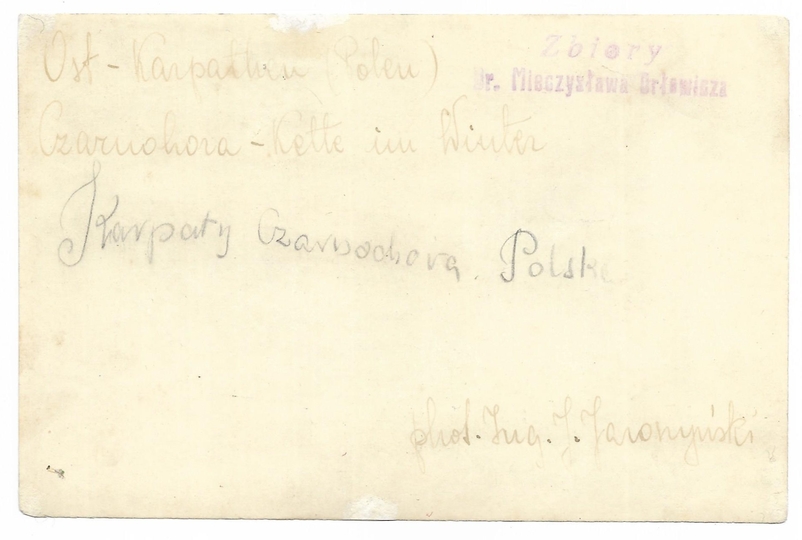 Ost-Karpathen (Polen)
Zbiory
Dr. Mieczysława Orłowicza
Czarnohora-Kette im Winter
Karpaty Czarnochora. Polska
phot. Ing. J. Jaroszyński